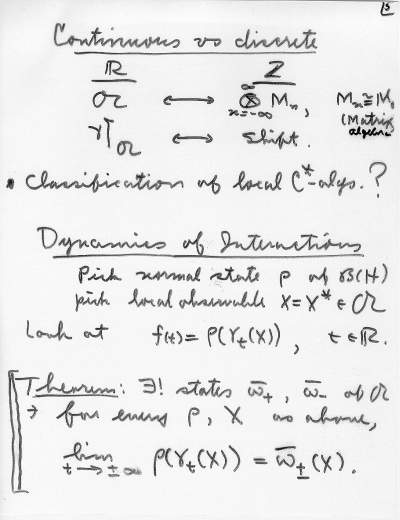 15
Continuous vs discrete
ℝ ℤ
𝒪 ⟷ ⊗_{n=-∞}^{∞} M_n, M_n ≅ M,
(Matrix
algebra
γ↾_𝒪 ⟷ Shift.
• Classification of local C*-algs.?
Dynamics of Interactions
Pick normal state ρ of 𝔅(H)
pick local observable X=X* ∈ 𝒪
Look at f(t)=ρ(γ_t(X)), t∈ℝ.
Theorem: ∃! states ω̄_+, ω̄_- of 𝒪
∋ for every ρ, X as above,
lim_{t→±∞} ρ(γ_t(X)) = ω̄_±(X).